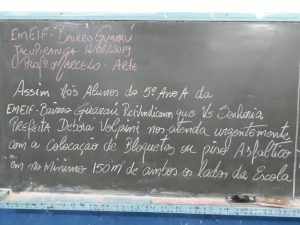 EMEIF - BAIRRO GUARAÚ
JACUPIRANGA 12/08/2019
PROFº MARCELO - ARTE
ASSIM NÓS ALUNOS DO 5º ANO A DA
EMEIF - BAIRRO GUARAÚ REIVINDICAMOS QUE VS SENHORIA
PREFEITA DEBORA VOLPINI NOS ATENDA URGENTEMENTE
COM A COLOCAÇÃO DE BLOQUETES OU PISO ASFÁLTICO
EM NO MÍNIMO 150 M DE AMBOS OS LADOS DA ESCOLA